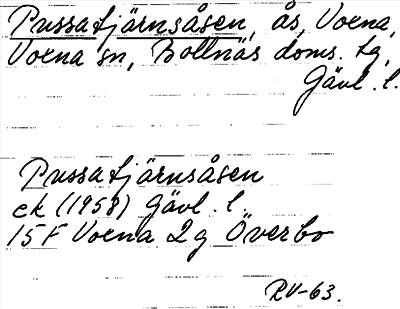 Pussatjärnsåsen, ås, Voxna,
Voxna sn, Bollnäs doms. tg,
Gävl. l.
Pussatjärnsåsen
ek (1958) Gävl. l.
15 F Voxna 2 g Överbo
RV-63.